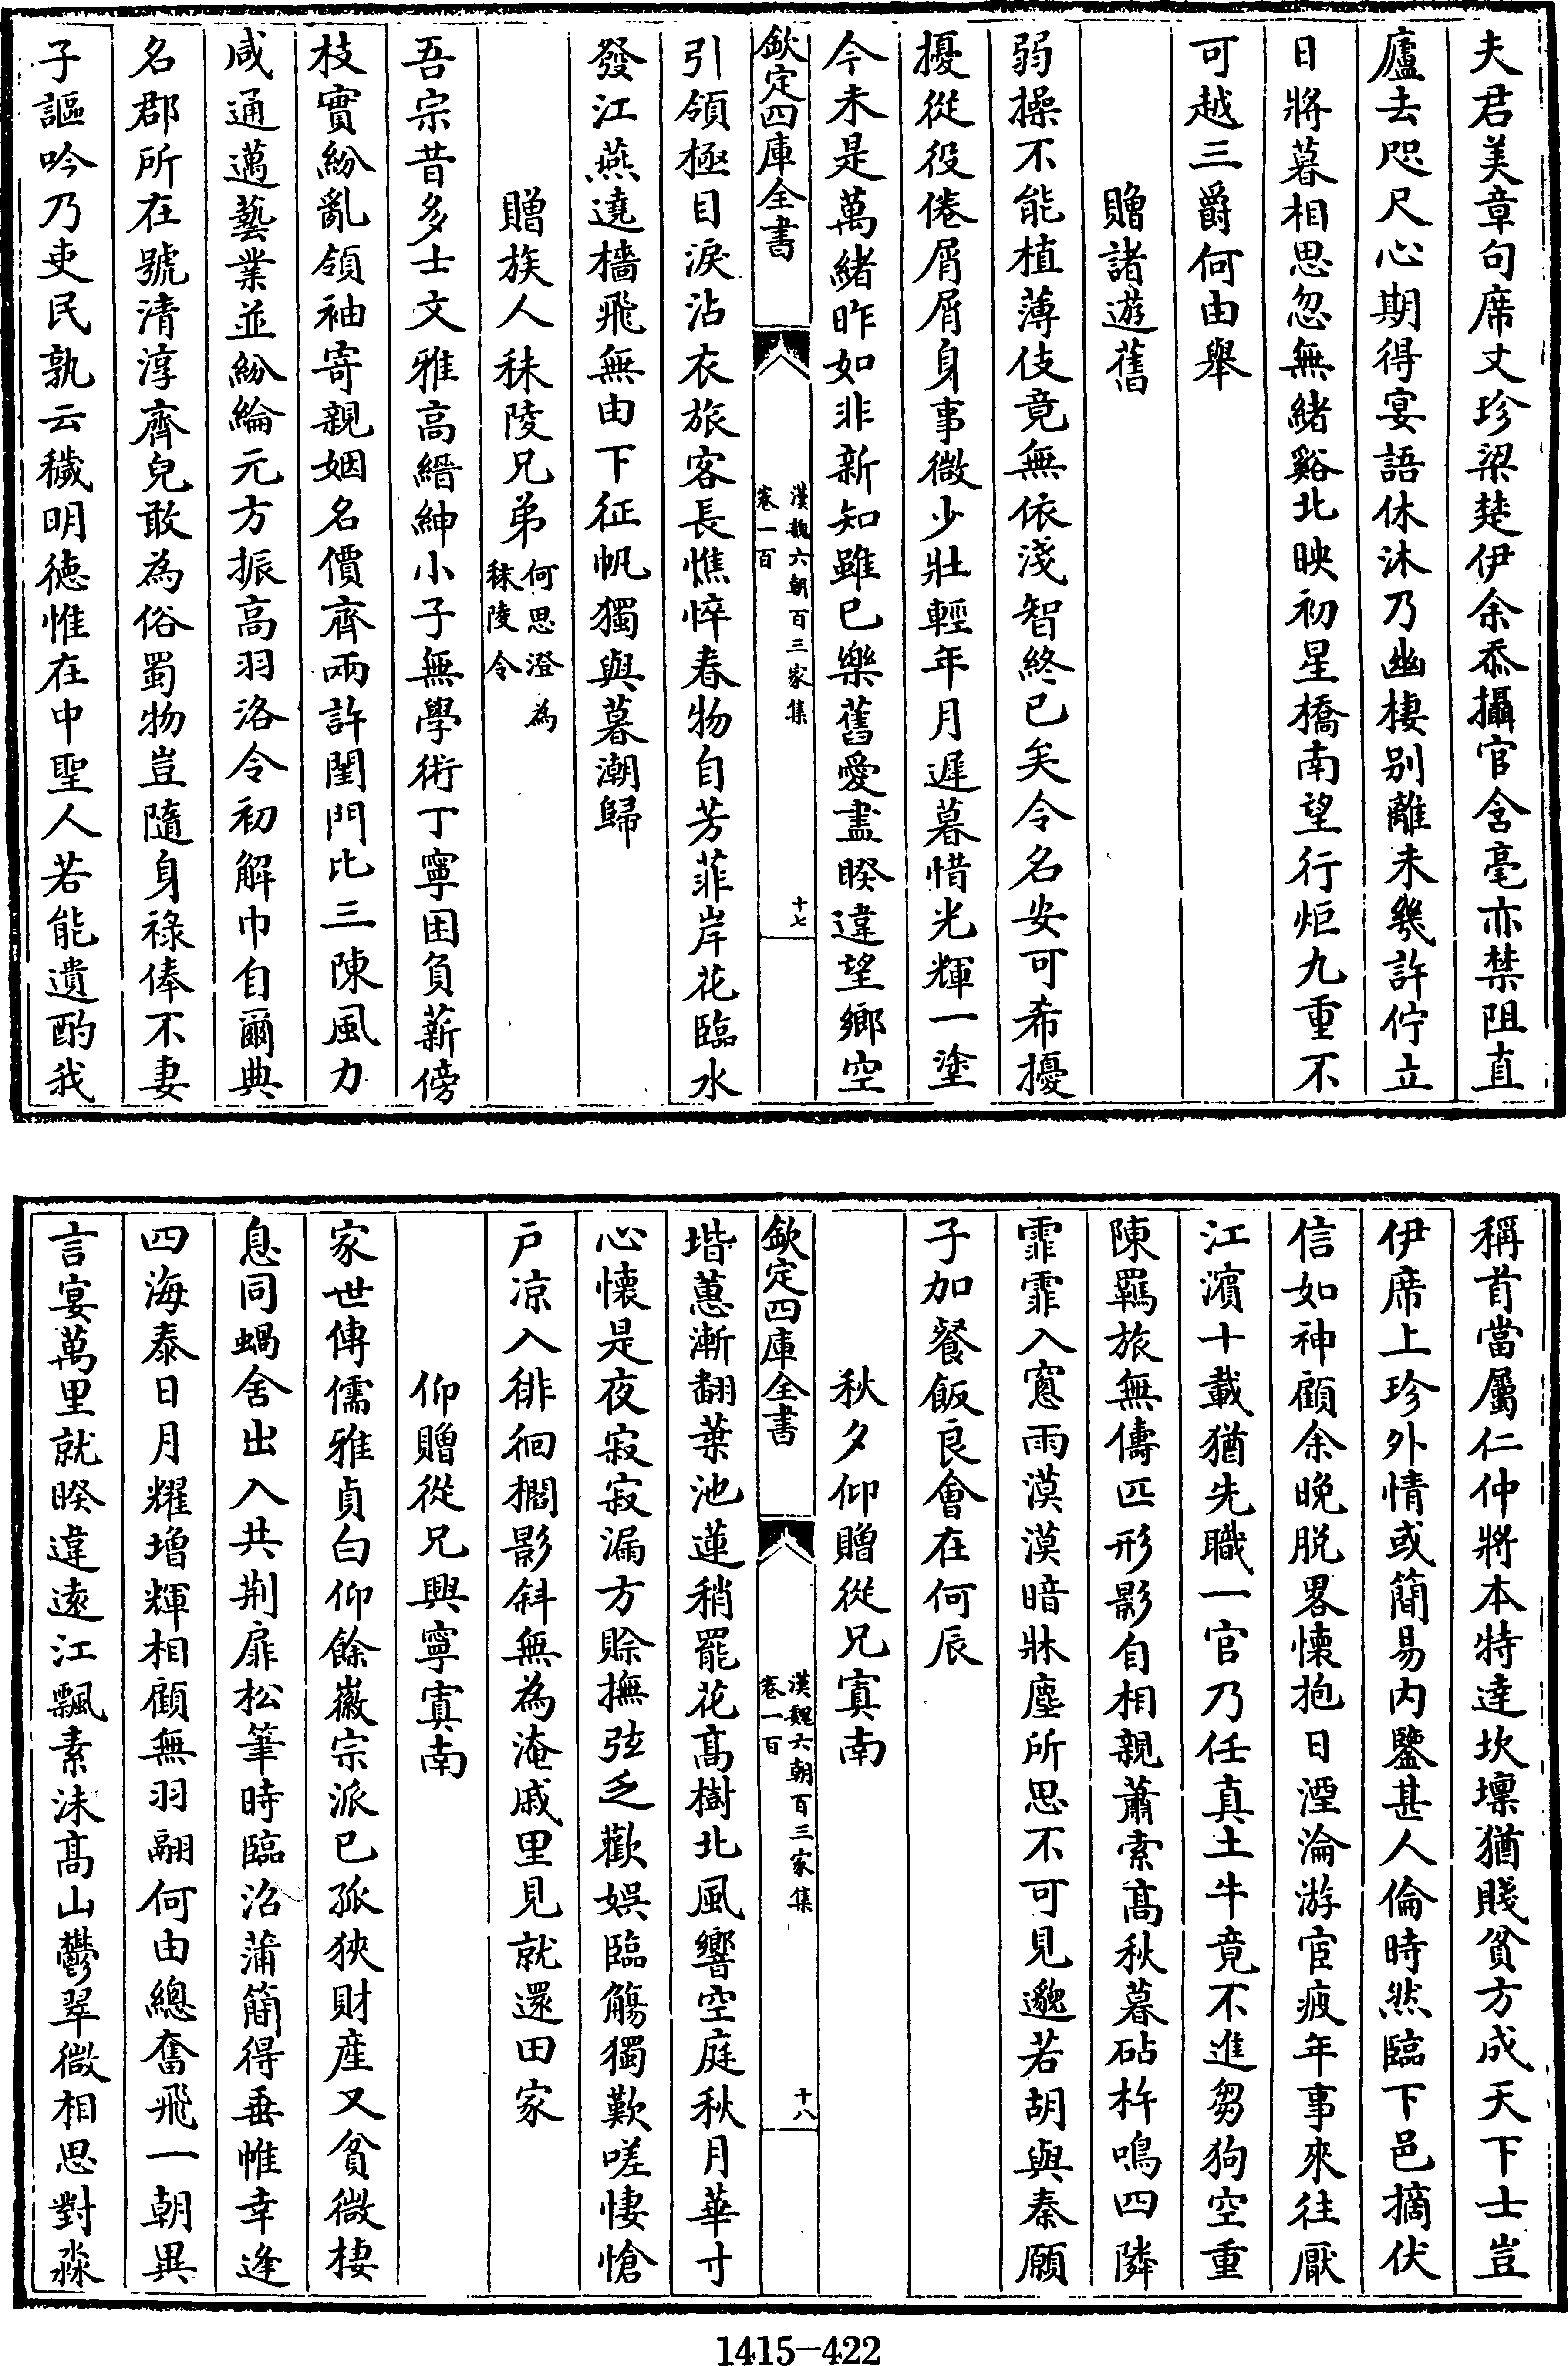 夫君美章句席丈珍梁楚伊余忝攝官含毫亦禁阻直
廬去咫尺心期得宴語休沐乃幽棲别離未幾許佇立
日將暮相思忽無緒谿北映初星橋南望行炬九重不
可越三爵何由舉
贈諸遊舊
弱操不能植薄伎竟無依淺智終已矣令名安可希擾
擾從役倦屑屑身事微少壯輕年月遲暮惜光輝一塗
今未是萬緒昨如非新知雖已樂舊愛盡睽違望鄉空
欽定四庫全書
漢魏六朝百三家集
卷一百
十七
引領極目淚沾衣旅客長憔悴春物自芳菲岸花臨水
發江燕遶檣飛無由下征帆獨與暮潮歸
贈族人秣陵兄弟何思澄為
秣陵令
吾宗昔多士文雅高縉紳小子無學術丁寧困負薪傍
枝實紛亂領袖寄親姻名價齊兩許閨門比三陳風力
咸通邁藝業並紛綸元方振高羽洛令初解巾自爾典
名郡所在號清淳齊兒敢為俗蜀物豈隨身祿俸不妻
子謳吟乃吏民孰云穢明德惟在中聖人若能遺酌我
稱首當屬仁仲將本特達坎壈猶賤貧方成天下士豈
伊席上珍外情或簡易内鑒甚人倫時然臨下邑摘伏
信如神顧余晚脱畧懐抱日湮淪游宦疲年事來往厭
江濵十載猶先職一官乃任真土牛竟不進芻狗空重
陳羈旅無儔匹形影自相親蕭索髙秋暮砧杵鳴四隣
霏霏入窻雨漠漠暗牀塵所思不可見邈若胡與秦願
子加餐飯良會在何辰
秋夕仰贈從兄寘南
欽定四庫全書
漢魏六朝百三家集
卷一百
十八
堦蕙漸翻葉池蓮稍罷花髙樹北風響空庭秋月華寸
心懐是夜寂寂漏方賒撫弦乏歡娱臨觴獨歎嗟悽愴
户凉入徘徊櫩影斜無為淹戚里見就還田家
仰贈從兄興寧寘南
家世傳儒雅貞白仰餘徽宗派已孤狹財産又貧微棲
息同蝸舍出入共荆扉松筆時臨沼蒲簡得垂帷幸逢
四海泰日月耀增輝相顧無羽翮何由總奮飛一朝異
言宴萬里就睽違遠江飄素沫髙山鬱翠微相思對淼
1415-422